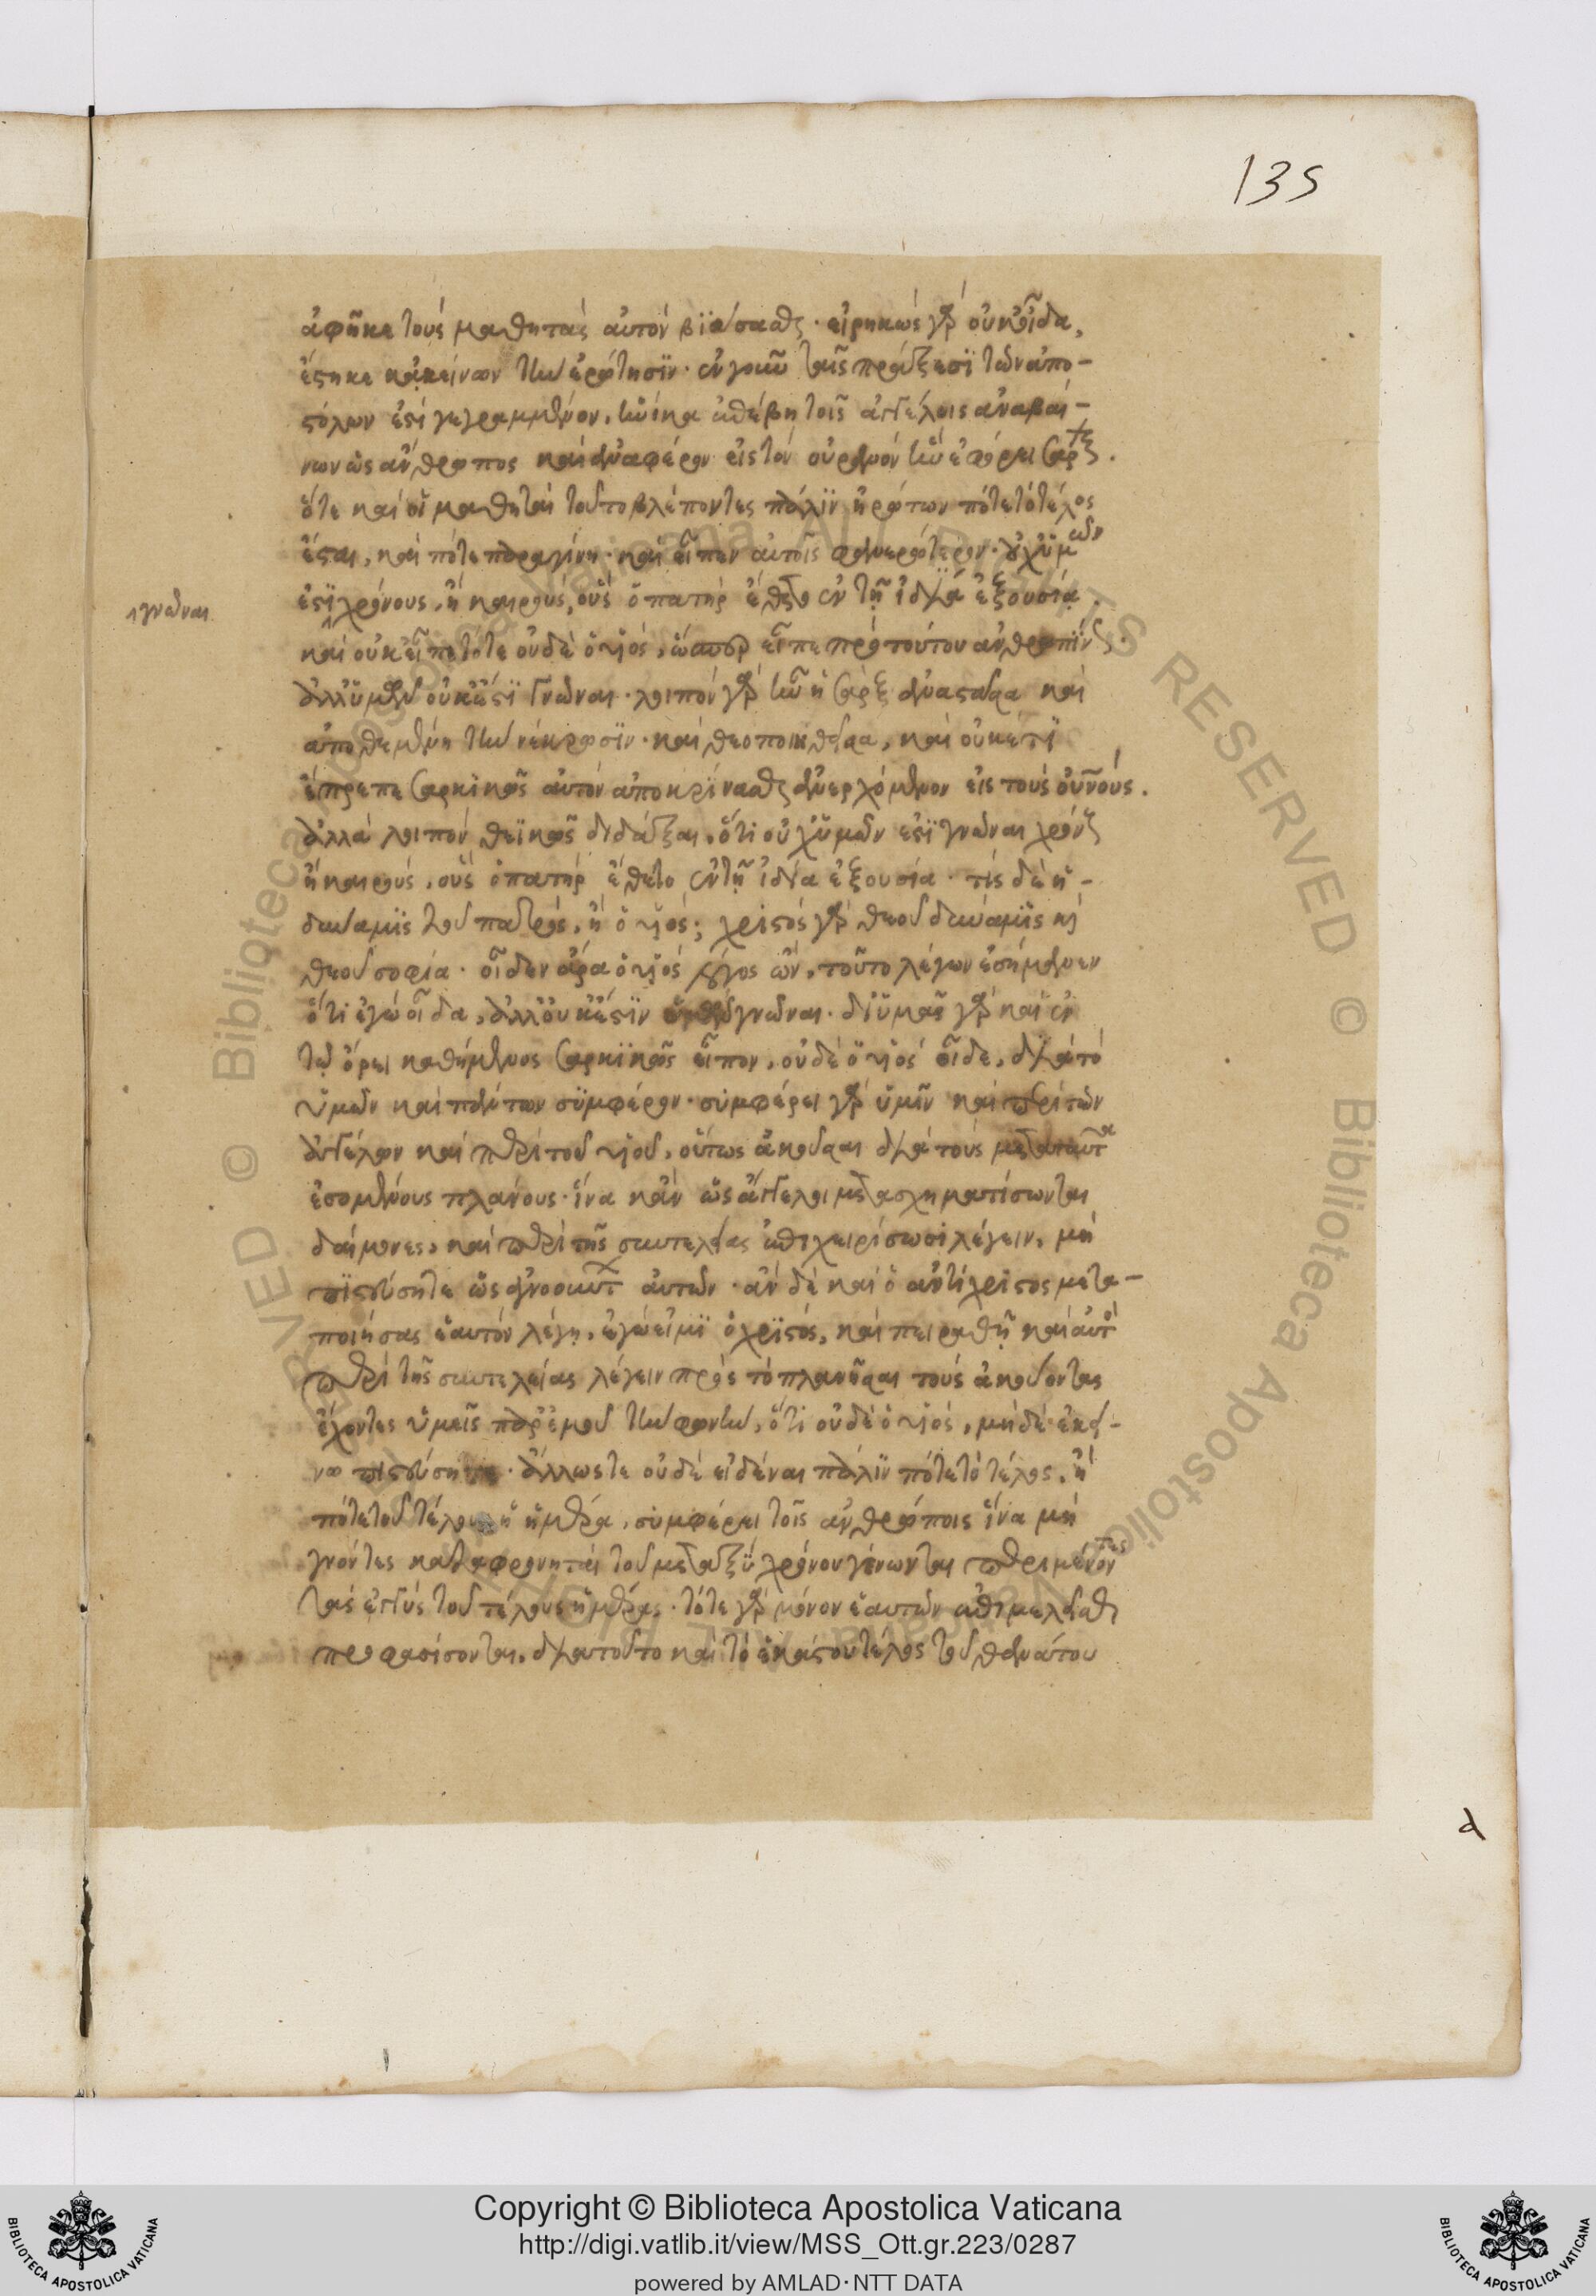 135
ἀφῆκε τοὺς μαθητὰς αὐτὸν βϊάσασθαι· εἰρηκὼς γὰρ οὐκ οἶδα,
ἔστησε κἀκείνων τὴν ἐρώτησϊν· ἐν γοῦν ταῖς πράξεσϊ τῶν ἀπο-
στόλων ἐστὶ γεγραμμένον, ἡνίκα ἐπέβη τοῖς ἀγγέλοις ἀναβαί-
νων ὡς ἄνθρωπος καὶ ἀναφέρων εἰς τὸν οὐρανὸν ἣν ἐφόρει σάρκα.
ὅτε καὶ οἱ μαθηταὶ τοῦτο βλέποντες πάλϊν ἠρώτων πότε τὸ τέλος
ἔσται, καὶ πότε παραγίνῃ· καὶ εἶπεν αὐτοῖς φανερώτερον· οὐχ ὑμῶν
ἐστϊ χρόνους, ἢ καιροὺς, οὓς ὁ πατὴρ ἔθετο ἐν τῇ ἰδίᾳ ἐξουσίᾳ.
γνῶναι
καὶ οὐκ εἶπε τότε οὐδὲ ὁ υἱὸς, ὥσπερ εἶπε πρὸ τούτου ἀνθρωπίνως.
ἀλλ' ὑμῶν οὐκ ἔστϊ γνῶναι· λοιπὸν γὰρ ἦν ἡ σὰρξ ἀναστᾶσα καὶ
ἀποθεμένη τὴν νέκρωσϊν· καὶ θεοποιηθεῖσα, καὶ οὐκέτϊ
ἔπρεπε σαρκικῶς αὐτὸν ἀποκρίνασθαι ἀνερχόμενον εἰς τοὺς οὐνοὺς.
ἀλλὰ λοιπὸν θεϊκῶς διδάξαι, ὅτι οὐχ ὑμῶν ἐστϊ γνῶναι χρόνους
ἢ καιροὺς, οὓς ὁ πατὴρ ἔθετο ἐν τῇ ἰδίᾳ ἐξουσίᾳ· τίς δὲ ἡ-
δύναμϊς τοῦ πατρὸς, ἢ ὁ υἱός; χριστὸς γὰρ θεοῦ δύναμϊς καὶ
θεοῦ σοφία· οἶδεν ἄρα ὁ υἱὸς λόγος ὢν, τοῦτο λέγων ἐσήμανεν
ὅτι ἐγὼ οἶδα, ἀλλ' οὐκ ἔστϊν ὑμῶν γνῶναι· δι' ὑμᾶς γὰρ καὶ ἐν
τῷ ὄρει καθήμενος σαρκϊκῶς εἶπον, οὐδὲ ὁ υἱὸς οἶδε, διὰ τὸ
ὑμῶν καὶ πάντων συμφέρον· συμφέρει γὰρ ὑμῖν καὶ περὶ τῶν
ἀγγέλων καὶ περὶ τοῦ υἱοῦ, οὕτως ἀκοῦσαι διὰ τοὺς μετὰ ταῦτα
ἐσομένους πλάνους· ἵνα κἂν ὡς ἄγγελοι μετασχηματίσωνται
δαίμονες, καὶ περὶ τῆς συντελείας ἐπιχειρίσωσι λέγειν, μὴ
πϊστεύσητε ὡς ἀγνοούντων αὐτῶν· ἂν δὲ καὶ ὁ ἀντίχριστος μετα-
ποιήσας ἑαυτὸν λέγῃ, ἐγώ εἰμϊ ὁ χρϊστὸς, καὶ πειραθῇ καὶ αὐτὸς
περὶ τῆς συντελείας λέγειν πρὸς τὸ πλανῆσαι τοὺς ἀκούοντας
ἔχοντες ὑμεῖς παρ' ἐμοῦ τὴν φωνὴν, ὅτι οὐδὲ ὁ υἱὸς, μηδὲ ἐκεί-
νῳ πιστεύσητε· ἄλλως τε οὐδὲ εἰδέναι πάλϊν πότε τὸ τέλος, ἢ
πότε τοῦ τέλους ἡ ἡμέρα, συμφέρει τοῖς ἀνθρώποις ἵνα μὴ
γνόντες καταφρονηταὶ τοῦ μεταξὺ χρόνου γένωνται περιμένοντες
τὰς ἐγγὺς τοῦ τέλους ἡμέρας· τότε γὰρ μόνον ἑαυτῶν ἐπιμελεῖσθαι
προφασίσονται, διὰ τοῦτο καὶ τὸ ἑκάστου τέλος τοῦ θανάτου
Copyright © Biblioteca Apostolica Vaticana
http://digi.vatlib.it/view/MSS_Ott.gr.223/0287
powered by AMLAD·NTT DATA